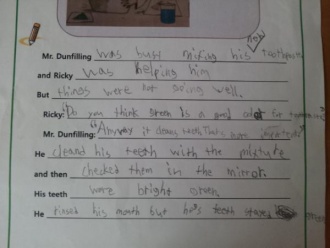 new
Mr. Dunfilling was busy mixing his toothpaste
and Ricky was helping him
But things were not going well.
Ricky: "Do you think green is a good color for
Mr. Dunfilling: "Anyway it doesn't
He cleand his teeth with the mixture
and then checked them in the mirror.
His teeth were bright green
He rinsed his mouth but his teeth stayed